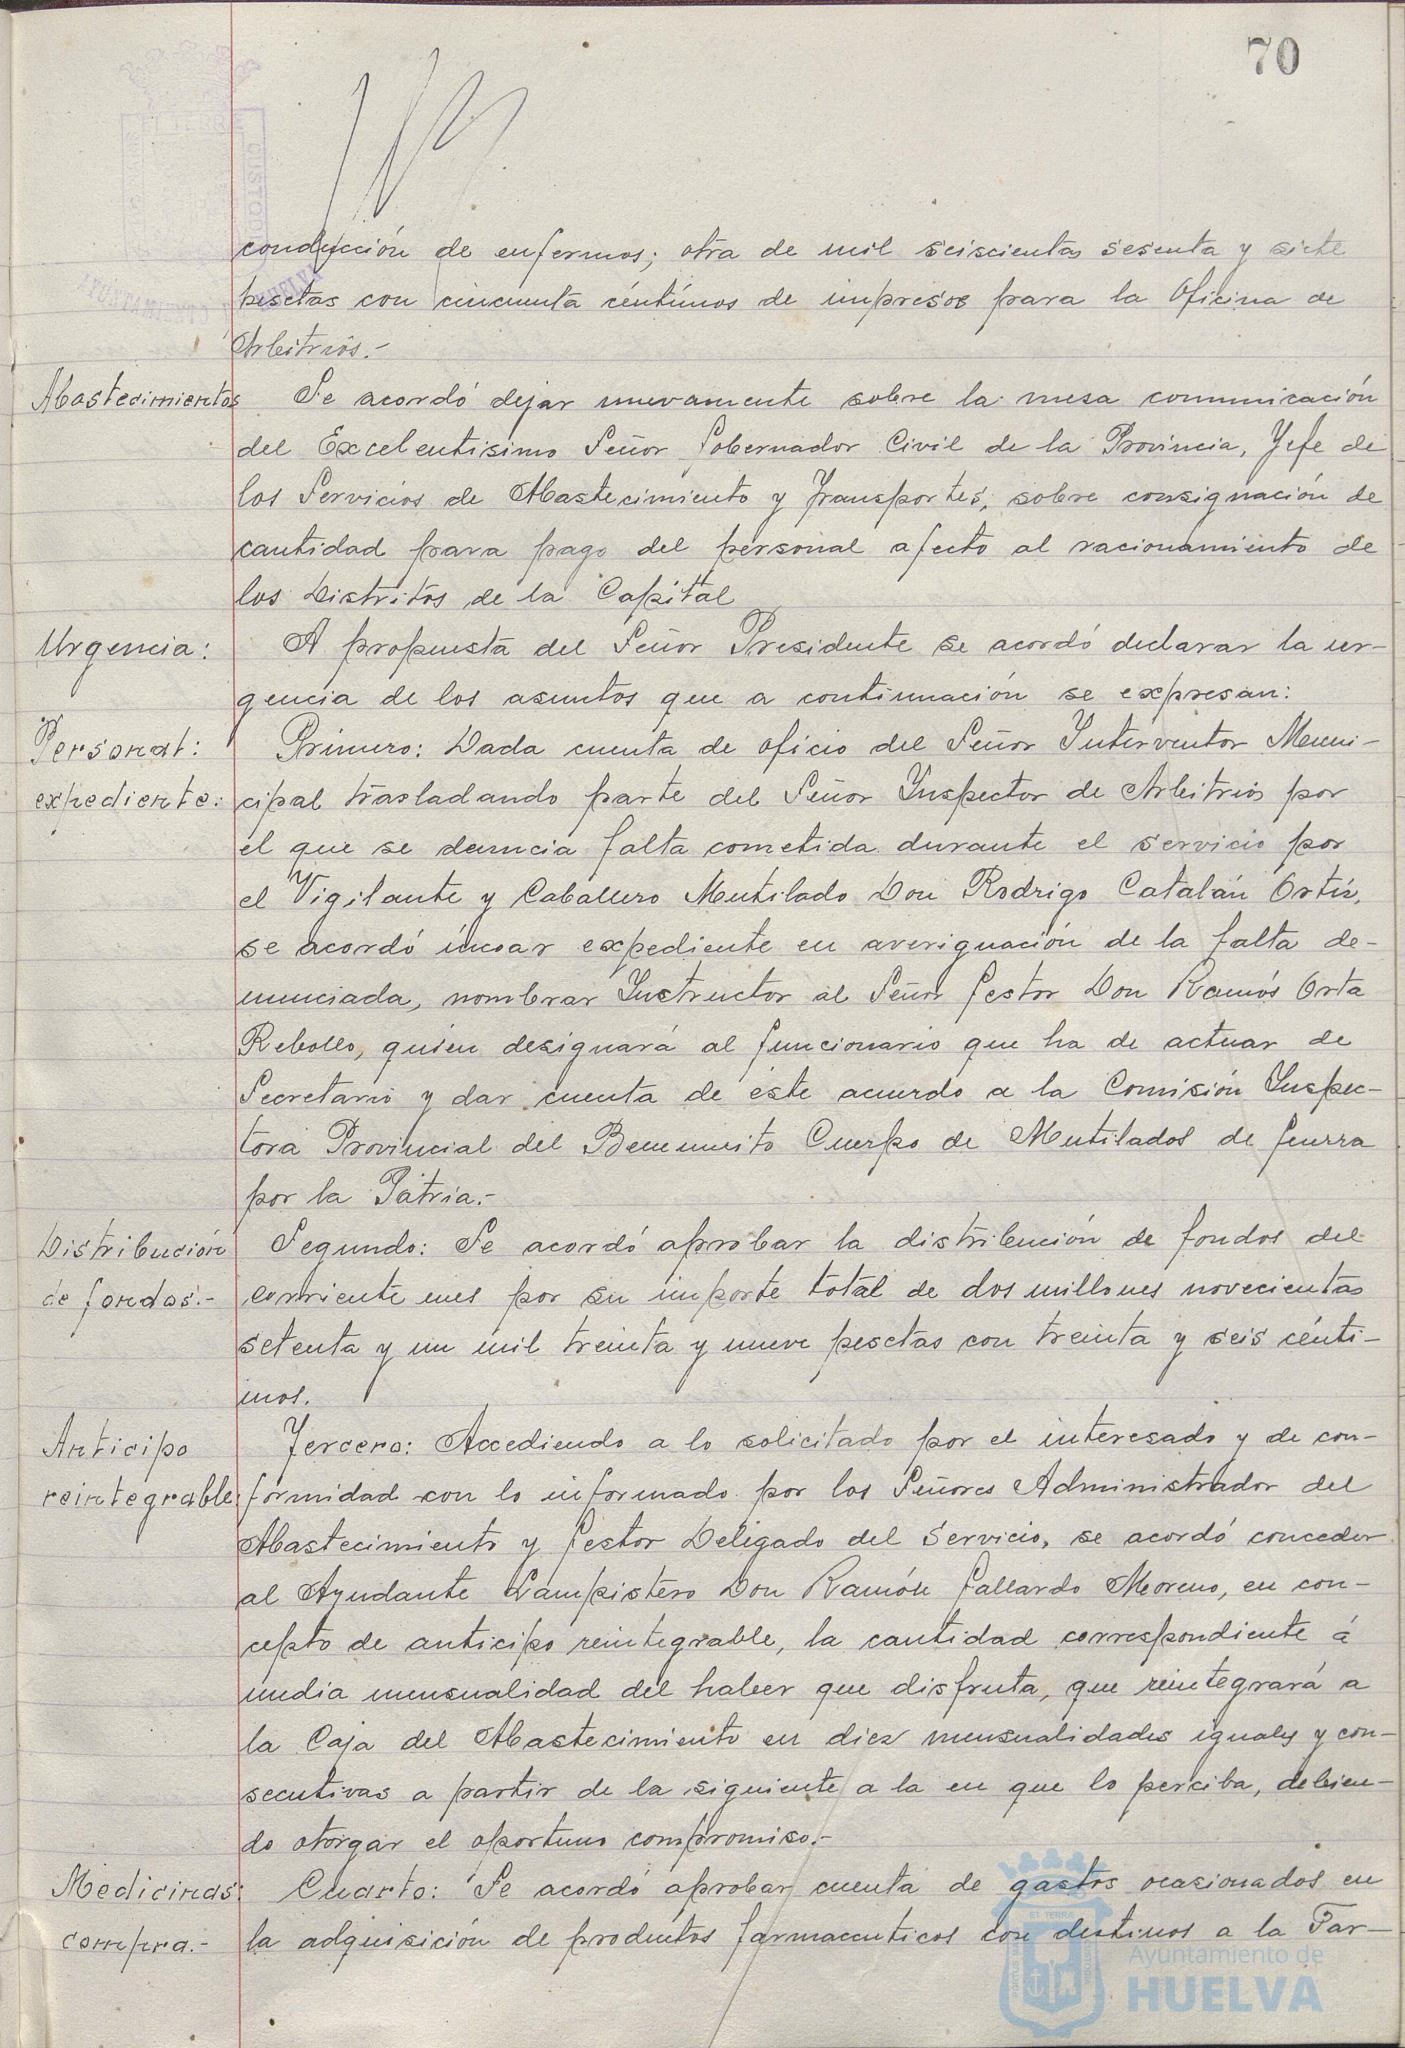 70
conducción de enfermos; otra de mil seiscientas sesenta y siete
pesetas con cincuenta céntimos de impresos para la Oficina de
Arbitrios.-
Abastecimientos Se acordó dejar nuevamente sobre la mesa comunicación
del Excelentisimo Señor Gobernador Civil de la Provincia, Jefe de
los Servicios de Abastecimiento y Transportes, sobre consignación de
cantidad para pago del personal afecto al racionamiento de
los Distritos de la Capital
Urgencia: A propuesta del Señor Presidente se acordó declarar la ur-
gencia de los asuntos que a continuación se expresan:
Personal: Primero: Dada cuenta de oficio del Señor Interventor Muni-
expediente: cipal trasladando parte del Señor Inspector de Arbitrios por
el que se denuncia falta cometida durante el servicio por
el Vigilante y Caballero Mutilado Don Rodrigo Catalán Ortíz,
se acordó incoar expediente en averiguación de la falta de-
nunciada, nombrar Instructor al Señor Gestor Don Ramós Orta
Rebollo, quien designará al funcionario que ha de actuar de
Secretario y dar cuenta de éste acuerdo a la Comisión Inspec-
tora Provincial del Benemerito Cuerpo de Mutilados de Guerra
por la Pátria.-
Distribución Segundo: Se acordó aprobar la distribución de fondos del
de fondos.- corriente mes por su importe total de dos millones novecientas
setenta y un mil treinta y nueve pesetas con treinta y seis cénti-
mos.
Anticipo Tercero: Accediendo a lo solicitado por el interesado y de con-
reintegrable: formidad con lo informado por los Señores Administrador del
Abastecimiento y Gestor Delegado del Servicio, se acordó conceder
al Ayudante Lampistero Don Ramón Gallardo Moreno, en con-
cepto de anticipo reintegrable, la cantidad correspondiente á
media mensualidad del haber que disfruta, que reintegrará a
la Caja del Abastecimiento en diez mensualidades iguales y con-
secutivas a partir de la siguiente a la en que lo perciba, debien-
do otorgar el oportuno compromiso.-
Medicinas: Cuarto: Se acordó aprobar cuenta de gastos ocasionados en
compra.- la adquisición de productos farmaceuticos con destinos a la Far-
Ayuntamiento de
HUELVA